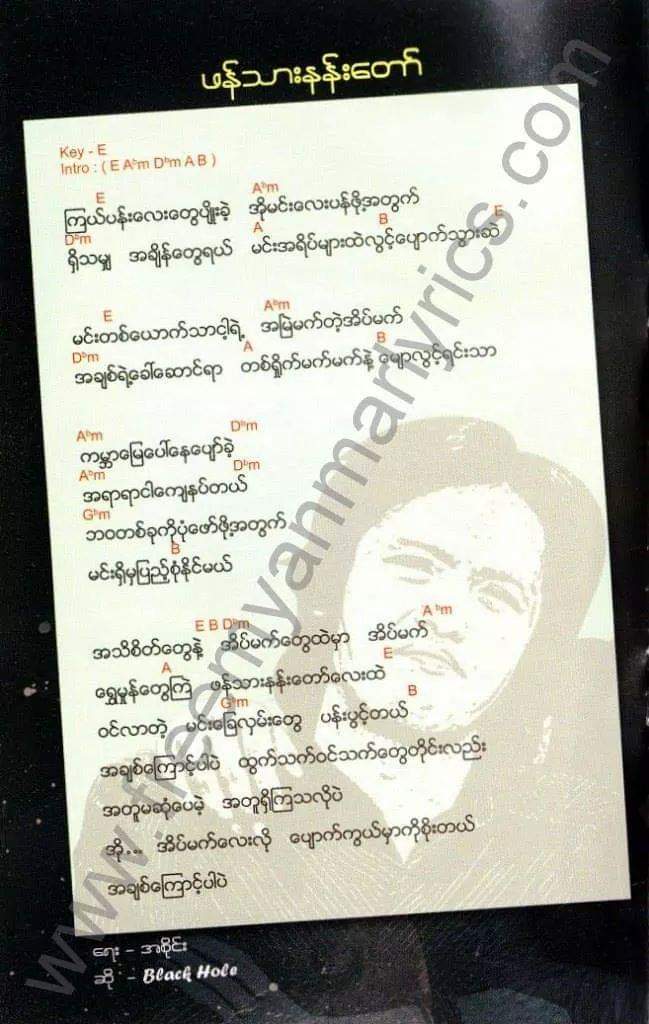 ဖန်သားနန်းတော်
Key - E
Intro : ( E Aᵇm Dᵇm A B )
E Aᵇm
ကြယ်ပန်းလေးတွေပျိုးခဲ့ အိုမင်းလေးပန်ဖို့အတွက်
Dᵇm A B E
ရှိသမျှ အချိန်တွေရယ် မင်းအရိပ်များထဲလွင့်ပျောက်သွားဆဲ
E Aᵇm
မင်းတစ်ယောက်သာငါ့ရဲ့ အမြဲမက်တဲ့အိပ်မက်
Dᵇm A B
အချစ်ရဲ့ခေါ်ဆောင်ရာ တစ်ရှိုက်မက်မက်နဲ့ မျောလွင့်ရင်းသာ
Aᵇm Dᵇm
ကမ္ဘာမြေပေါ်နေပျော်ခဲ့
Aᵇm Dᵇm
အရာရာငါကျေနပ်တယ်
Gᵇm
ဘဝတစ်ခုကိုပုံဖော်ဖို့အတွက်
B
မင်းရှိမှပြည့်စုံနိုင်မယ်
E B Dᵇm A ᵇm
အသိစိတ်တွေနဲ့ အိပ်မက်တွေထဲမှာ အိပ်မက်
A E
ရွှေမှုန်တွေကြဲ ဖန်သားနန်းတော်လေးထဲ
Gᵇm B
ဝင်လာတဲ့ မင်းခြေလှမ်းတွေ ပန်းပွင့်တယ်
အချစ်ကြောင့်ပါပဲ ထွက်သက်ဝင်သက်တွေတိုင်းလည်း
အတူမဆုံပေမဲ့ အတူရှိကြသလိုပဲ
အို... အိပ်မက်လေးလို ပျောက်ကွယ်မှာကိုစိုးတယ်
အချစ်ကြောင့်ပါပဲ
ရေး - အစိုင်း
ဆို - Black Hole
www.freemyanmarlyrics.com